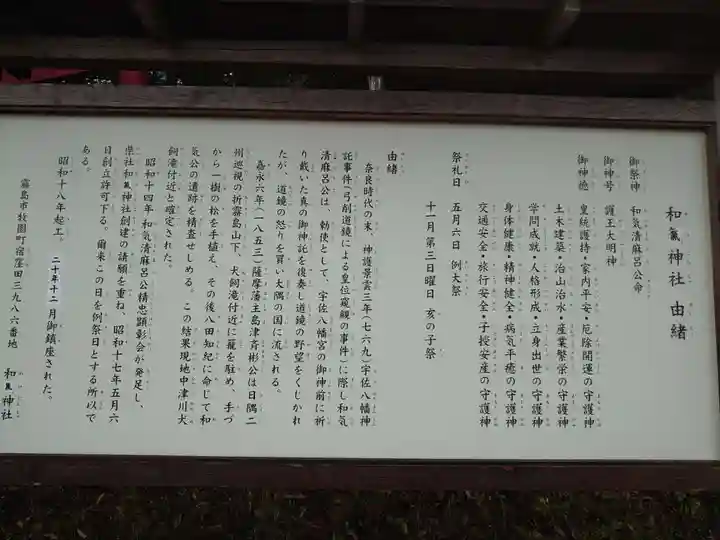 和氣神社 由緒
御祭神 和気清麻呂公命
御神号 護王大明神
御神徳 皇統護持・家内平安・厄除開運の守護神
土木建築・治山治水・産業繁栄の守護神
学問成就・人格形成・立身出世の守護神
身体健康・精神健全・病気平癒の守護神
交通安全・旅行安全・子授安産の守護神
祭礼日 五月六日 例大祭
十一月 第三日曜日 亥の子祭
由緒
奈良時代の末、神護景雲三年(七六九)宇佐八幡神
託事件(弓削道鏡による皇位窺覦の事件)に際し和気
清麻呂公は、勅使として、宇佐八幡宮の御神前に祈
り戴いた真の御神託を復奏し道鏡の野望をくじかれ
たが、道鏡の怒りを買い大隅の国に流される。
嘉永六年(一八五三)薩摩藩主島津斉彬公は日隅二
州巡視の折霧島山下、犬飼滝付近に籠を駐め、手づ
から一樹の松を手植え、その後八田知紀に命じて和
気公の遺跡を精査せしめる。この結果現地中津川犬
飼滝付近と確定された。
昭和十四年和気清麻呂公精忠顕彰会が発足し、
県社和氣神社創建の請願を重ね、昭和十七年五月六
日創立許可下る。爾来この日を例祭日とする所以で
ある。
昭和十八年起工。二十年十二月御鎮座された。
霧島市牧園町宿窪田三九八六番地 和氣神社